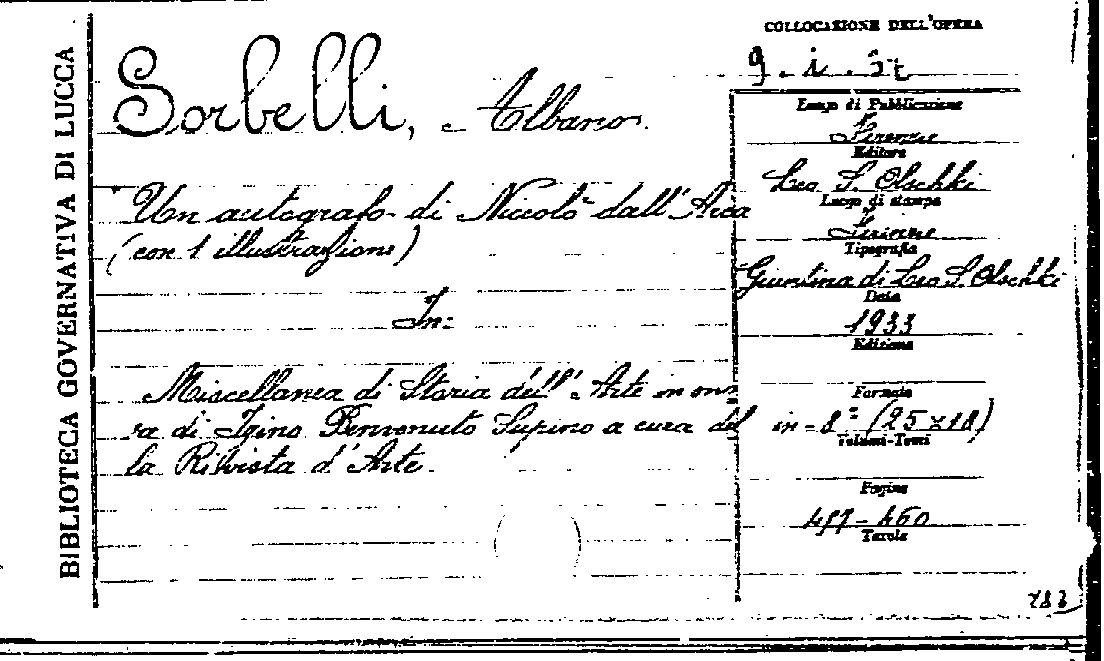 BIBLIOTECA GOVERNATIVA DI LUCCA
Sorbelli, Albano.
Un autografo di Niccolò dall'Arca
(con 1 illustrazione)
In:
Miscellanea di Storia dell'Arte in ono
ra di Igino Benvenuto Supino a cura del
la Rilvista d'Arte.
COLLOCAZIONE DELL'OPERA
Luogo di Pubblicazione
Firenze
Editore
Leo S. Olschki
Luogo di stampa
Firenze
Tipografia
Giuntina di Leo S. Olschki
Data
1933
Edizione
Formato
in-8° (25x18)
Volumi-Tomi
Pagine
457-460
Tavole